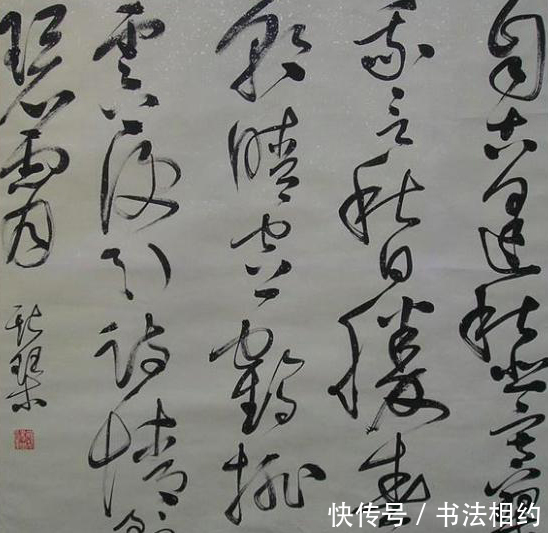 自古逢秋悲寂寥
我言秋日勝春
朝晴空一鶴排
雲上便引詩情到
碧霄
快传号/书法相约